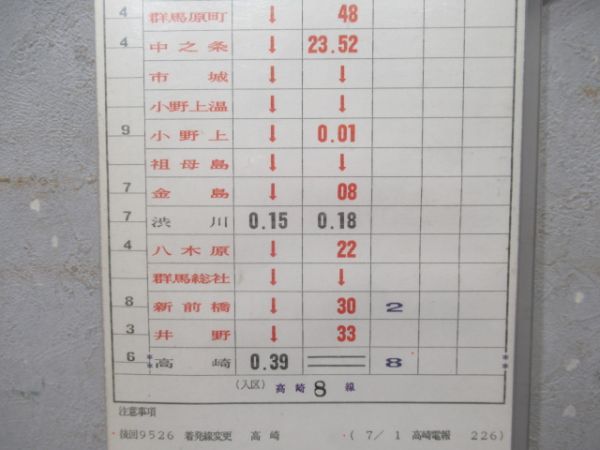 4 群馬原町 ↓ 48
4 中之条 ↓ 23.52
市城 ↓ ↓
小野上温 ↓ ↓
9 小野上 ↓ 0.01
祖母島 ↓ ↓
7 金島 ↓ 08
7 渋川 0.15 0.18
4 八木原 ↓ 22
群馬総社 ↓ ↓
8 新前橋 ↓ 30 2
3 井野 ↓ 33
6 高崎 0.39 8
(入区) 高崎 8 線
注意事項
後回9526 着発線変更 高崎 ( 7/ 1 高崎電報 226)